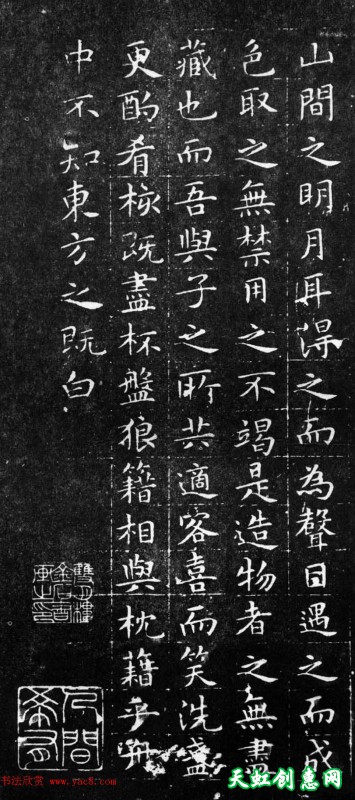 山間之明月耳得之而為聲目遇之而成
色取之無禁用之不竭是造物者之無盡
藏也而吾與子之所共適客喜而笑洗盞
更酌肴核既盡杯盤狼籍相與枕藉乎舟
中不知東方之既白
人間
希有
书法欣赏 www.yac8.com
天虹创意网